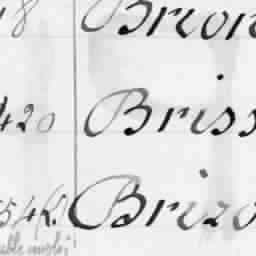 18 Brion
420 Briss
54(K.) Brizo